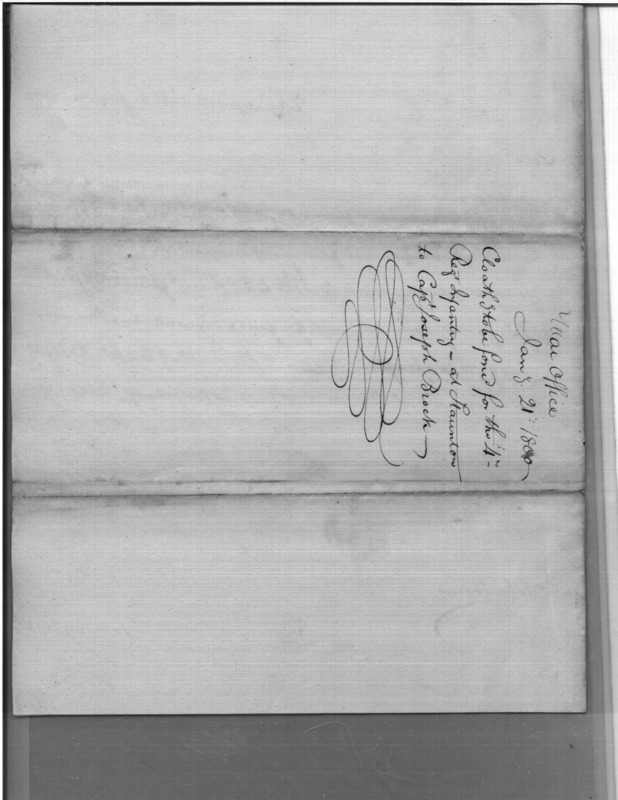 War Office
Jany. 21st 1800
Cloathg to be forwd for the 4th
Regt Infantry - at Staunton
to Capt Joseph Brock